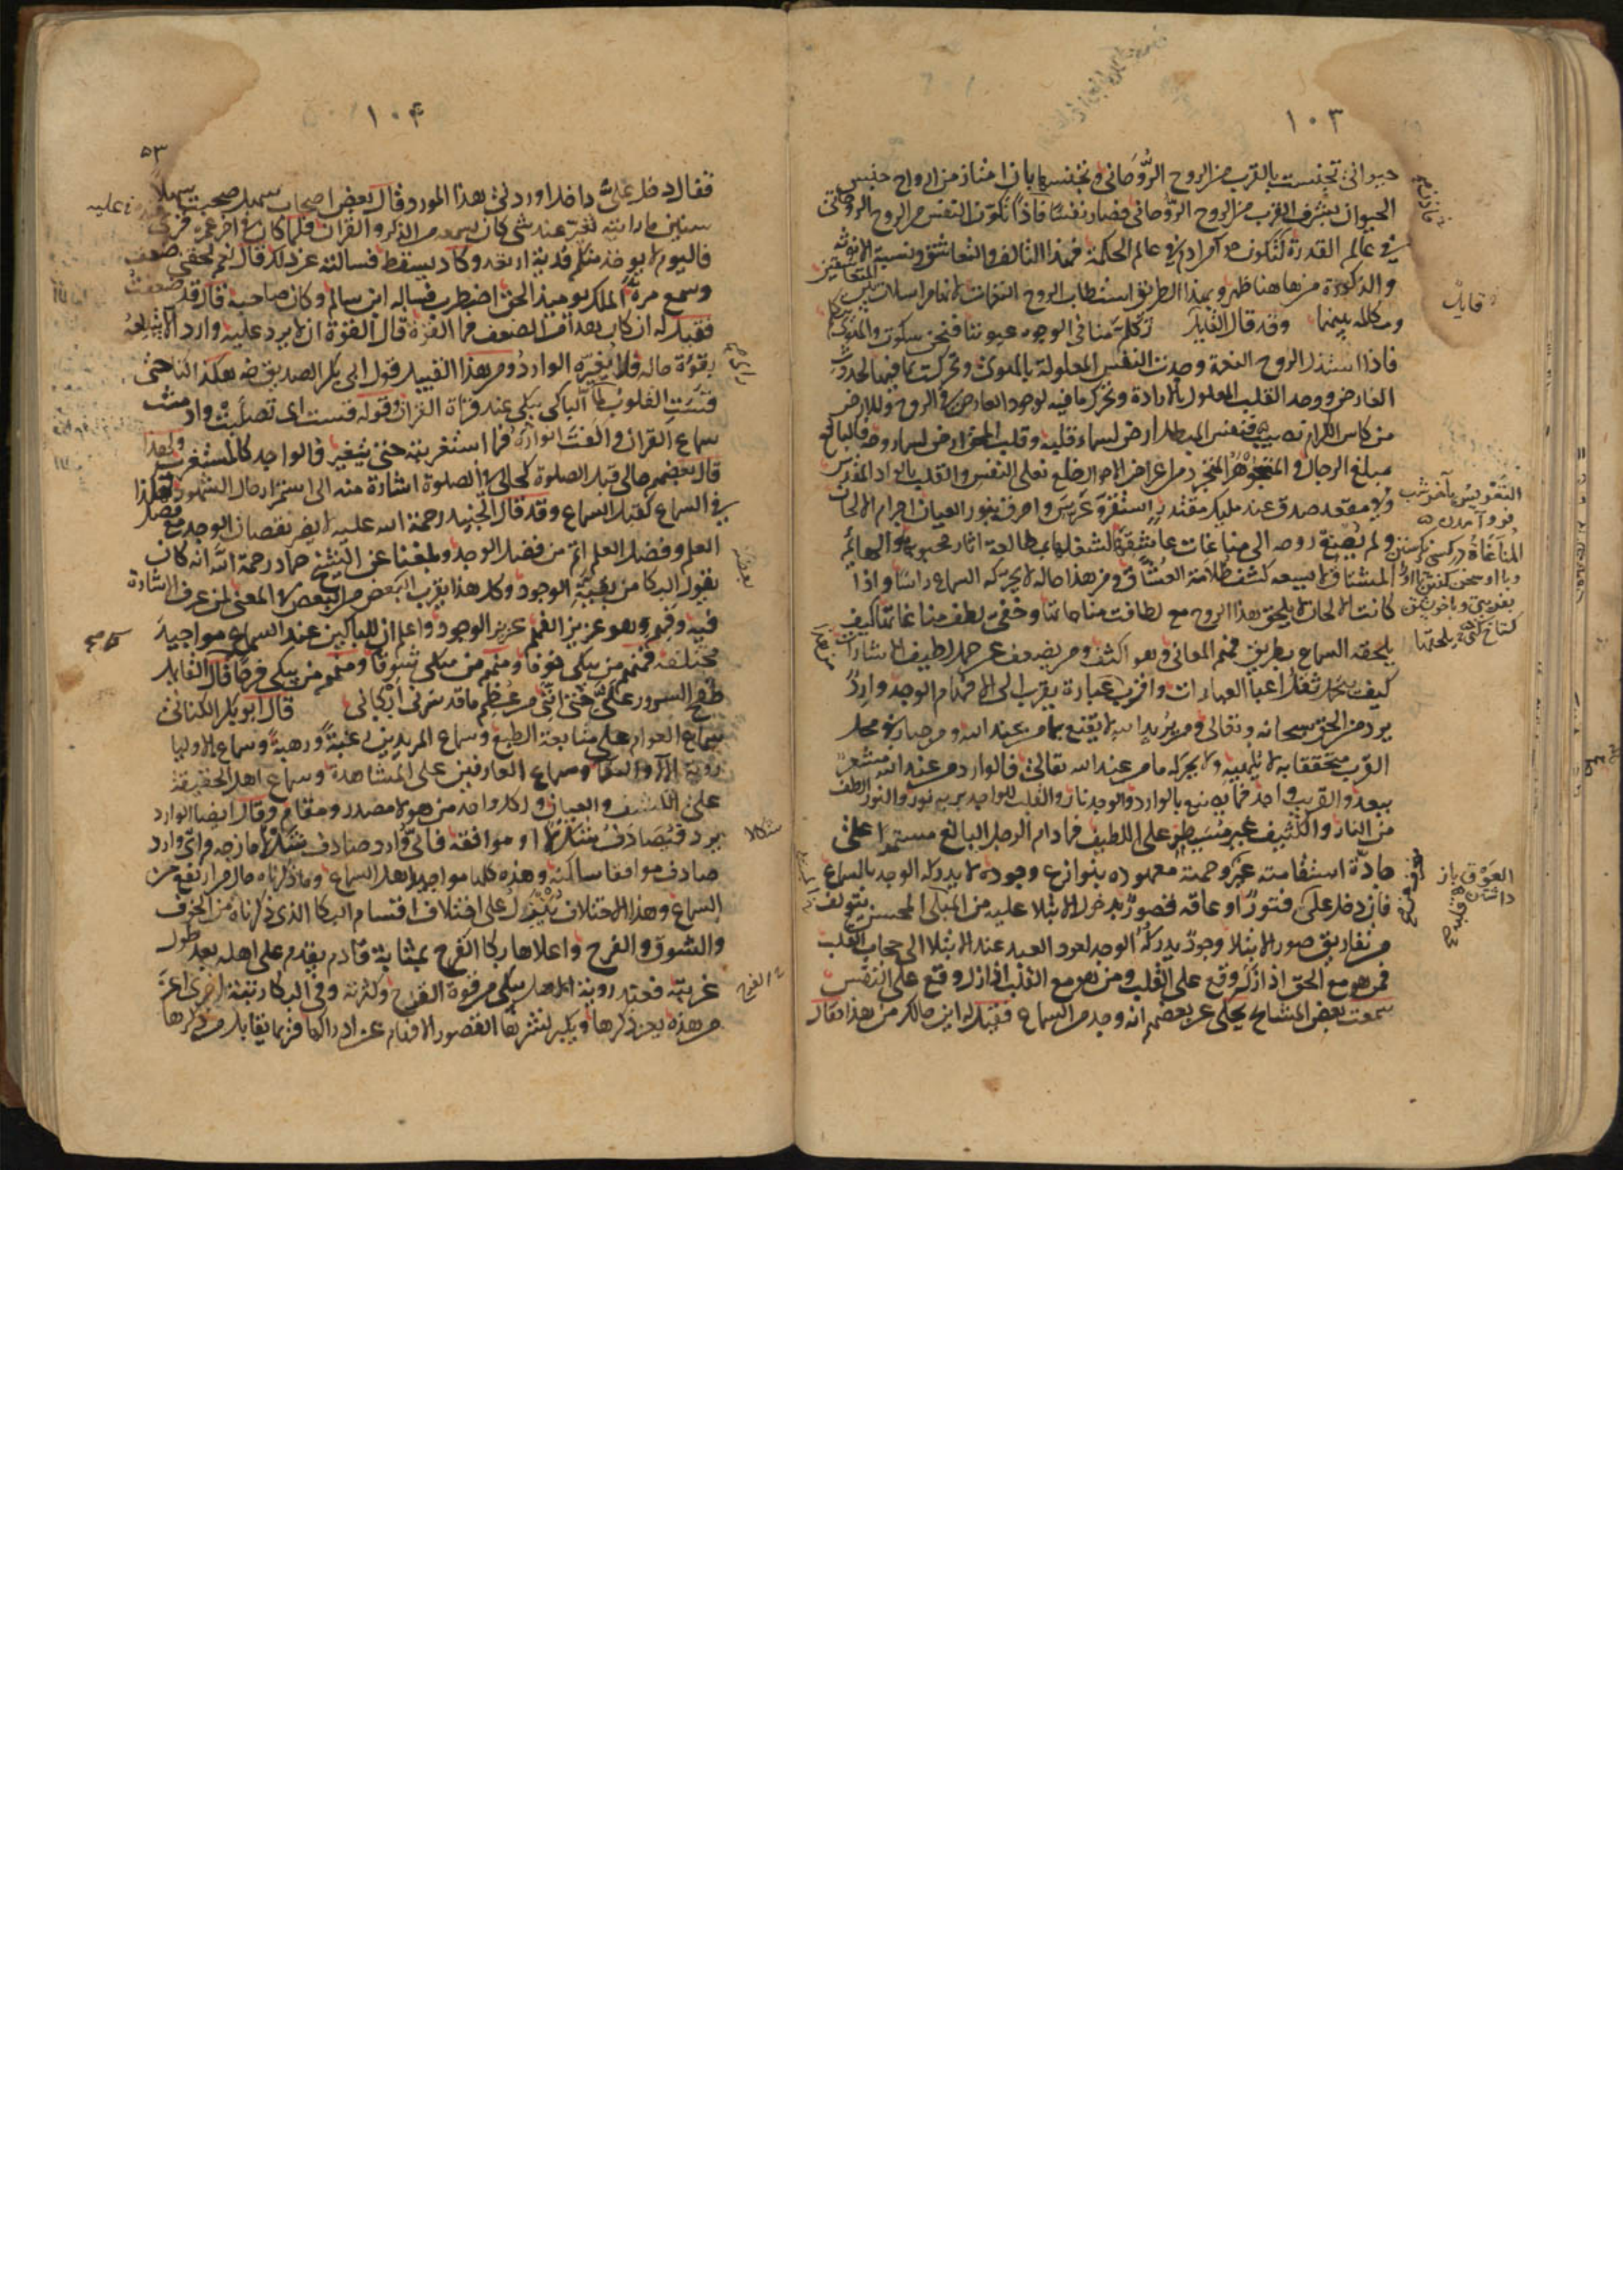 ١٠٣
حيواني تجنست بالقرب من الروح الروحاني وتجنسها بان امتاز من ارواح جنس
الحيوان بشرف القرب من الروح الروحاني فصار نفسا فاذا تكون النفس من الروح الروحاني
في عالم القدرة لتكون حوا من ادم في عالم الحكمة فهذا التالف والتعاشق ونسبة الانوثة
والذكورة من هاهنا ظهر وبهذا الطريق استطاب الروح النغمات لانها مراسلات بين المتعاشقين
ومكالمة بينهما وقد قال القايل تكلم منا في الوجوه عيوننا فنحن سكوت والهوى يتكلم
فاذا استلذ الروح النغمة وجدت النفس المعلولة بالهوى وتحركت بما فيها لحدوث
العارض ووجد القلب المعلول بالارادة وتحرك بما فيه لوجود العارض في الروح وللارض
من كاس الكرام نصيب فنفس المبطل ارض لسماء قلبه وقلب المحق ارض لسماء روحه فالبالغ
مبلغ الرجال والمتجوهر المتجرد من اعراض الاحوال خلع نعلي النفس والقلب بالواد المقدس
وفي مقعد صدق عند مليك مقتدر استقر وعرس واحرق بنور العيان اجرام الالحان
ولم تصغ روحه الى مناغات عاشقة لشغلها بمطالعة اثار محبوبه والهائم
المشتاق لا يسعه كشف ظلامة العشاق ومن هذا حاله لا يحركه السماع راسا واذا
كانت الالحان لا يلحق هذا الروح مع لطافت مناجاتها وخفي لطف مناغاتها كيف
يلحقه السماع بطريق فهم المعاني وهو اكثف ومن يضعف عن حمل لطيف الاشارات
كيف يتحمل ثقل اعبا العبارات واقرب عبارة يقرب الى الافهام الوجد وارد
يرد من الحق سبحانه وتعالى ومن يريد الله لا يقنع بما من عند الله ومن صار في محل
القرب متحققا به لا يلهيه ولا يحركه ما من عند الله تعالى فالوارد من عند الله مشعر
ببعد والقريب واجد فما يصنع بالوارد والوجد نار والقلب للواجد بربه نور والنور الطف
من النار والكثيف غير مسيطر على اللطيف فما دام الرجل البالغ مستمرا على
جادة استقامته غير منحرف عن وجه معهوده بنوازع وجوده لا يدركه الوجد بالسماع
فان دخل عليه فتور او عاقه قصور بدخول الابتلا عليه من المبلى المحسن يتولف
من تفاريق صور الابتلا وجود يدركه الوجد لعود العبد عند الابتلا الى حجاب القلب
فمن هو مع الحق اذا زل وقع على القلب ومن هو مع القلب اذا زل وقع على النفس
سمعت بعض المشايخ يحكي عن بعضهم انه وجد من السماع فقيل له اين حالك من هذا فقال
قايل
التعويس باخر شب
فرود آمدن
العوق باز
داشتن
١٠۴
٥٣
فقال دخل علي داخل اوردني هذا المورد وقال بعض اصحاب سهل صحبت سهلا
سنين ما رايته تغير عند شي كان يسمعه من الذكر والقران فلما كان في اخر عمره قرئ عليه
فاليوم لا يوخذ منكم فدية ارتعد وكاد يسقط فسالته عن ذلك قال نعم لحقني ضعف
وسمع مرة الملك يوميذ الحق اضطرب فساله ابن سالم وكان صاحبه قال قد ضعفت
فقيل له ان كان هذا من الضعف فما القوة قال القوة ان لا يرد عليه وارد الا يبتلعه
بقوة حاله فلا يغيره الوارد ومن هذا القبيل قول ابي بكر الصديق رضه هكذا كنا حتى
قست القلوب لما راى الباكي يبكي عند قراة القران وقوله قست اى تصلبت وادمنت
سماع القران والفت انواره فما استغربته حتى يتغير فالواجد كالمستغرب ولهذا
قال بعضهم حالي قبل الصلوة كحالي في الصلوة اشارة منه الى استمرار حال الشهود فهكذا
في السماع كقبل السماع وقد قال الجنيد رحمة الله عليه لا يضر نقصان الوجد مع فضل
العلم وفضل العلم اتم من فضل الوجد وبلغنا عن الشيخ حماد رحمة الله انه كان
يقول البكا من بقية الوجود وكل هذا يقرب البعض من البعض في المعنى لمن عرف الاشارة
فيه وفهم وهو عزيز الفهم عزيز الوجود واعلم ان للباكين عند السماع مواجيد
مختلفة فمنهم من يبكي خوفا ومنهم من يبكي شوقا ومنهم من يبكي فرحا قال القايل
طفح السرور علي حتى انني من عظم ما قد سرني ابكاني قال ابو بكر الكتاني
سماع العوام على متابعة الطبع وسماع المريدين رغبة ورهبة وسماع الاوليا
روية الالا والنعما وسماع العارفين على المشاهدة وسماع اهل الحقيقة
على الكشف والعيان ولكل واحد من هولا مصدر ومقام وقال ايضا الوارد
يرد فيصادف شكلا او موافقة فاي وارد صادف شكلا مازجه واى وارد
صادف موافقا ساكنه وهذه كلها مواجيد اهل السماع وما ذكرناه حال من ارتفع عن
السماع وهذا الاختلاف ينزل على اختلاف اقسام البكا الذي ذكرناه من الخوف
والشوق والفرح واعلاها بكا الفرح بمثابة قادم يقدم على اهله بعد طول
غربته فعند روية الاهل يبكي من قوة الفرح وكثرته وفي البكا رتبة اخرى اعز
من هذه يعز ذكرها ويكبر نشرها لقصور الافهام عن ادراكها فربما يقابل من ذكرها